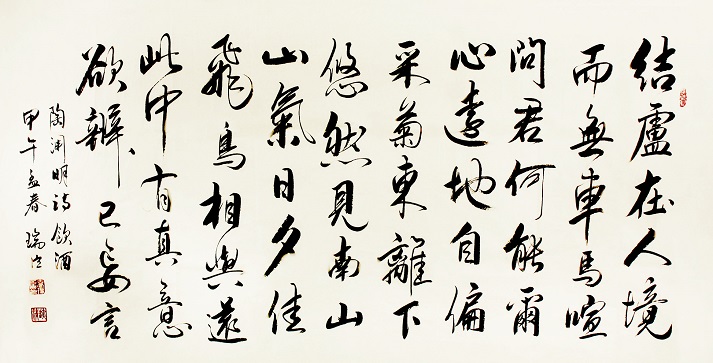 結廬在人境
而無車馬喧
問君何能爾
心遠地自偏
采菊東離下
悠然見南山
山氣日夕佳
飛鳥相與還
此中有真意
欲辨已忘言
陶渊明诗飲酒
甲午孟春瑞